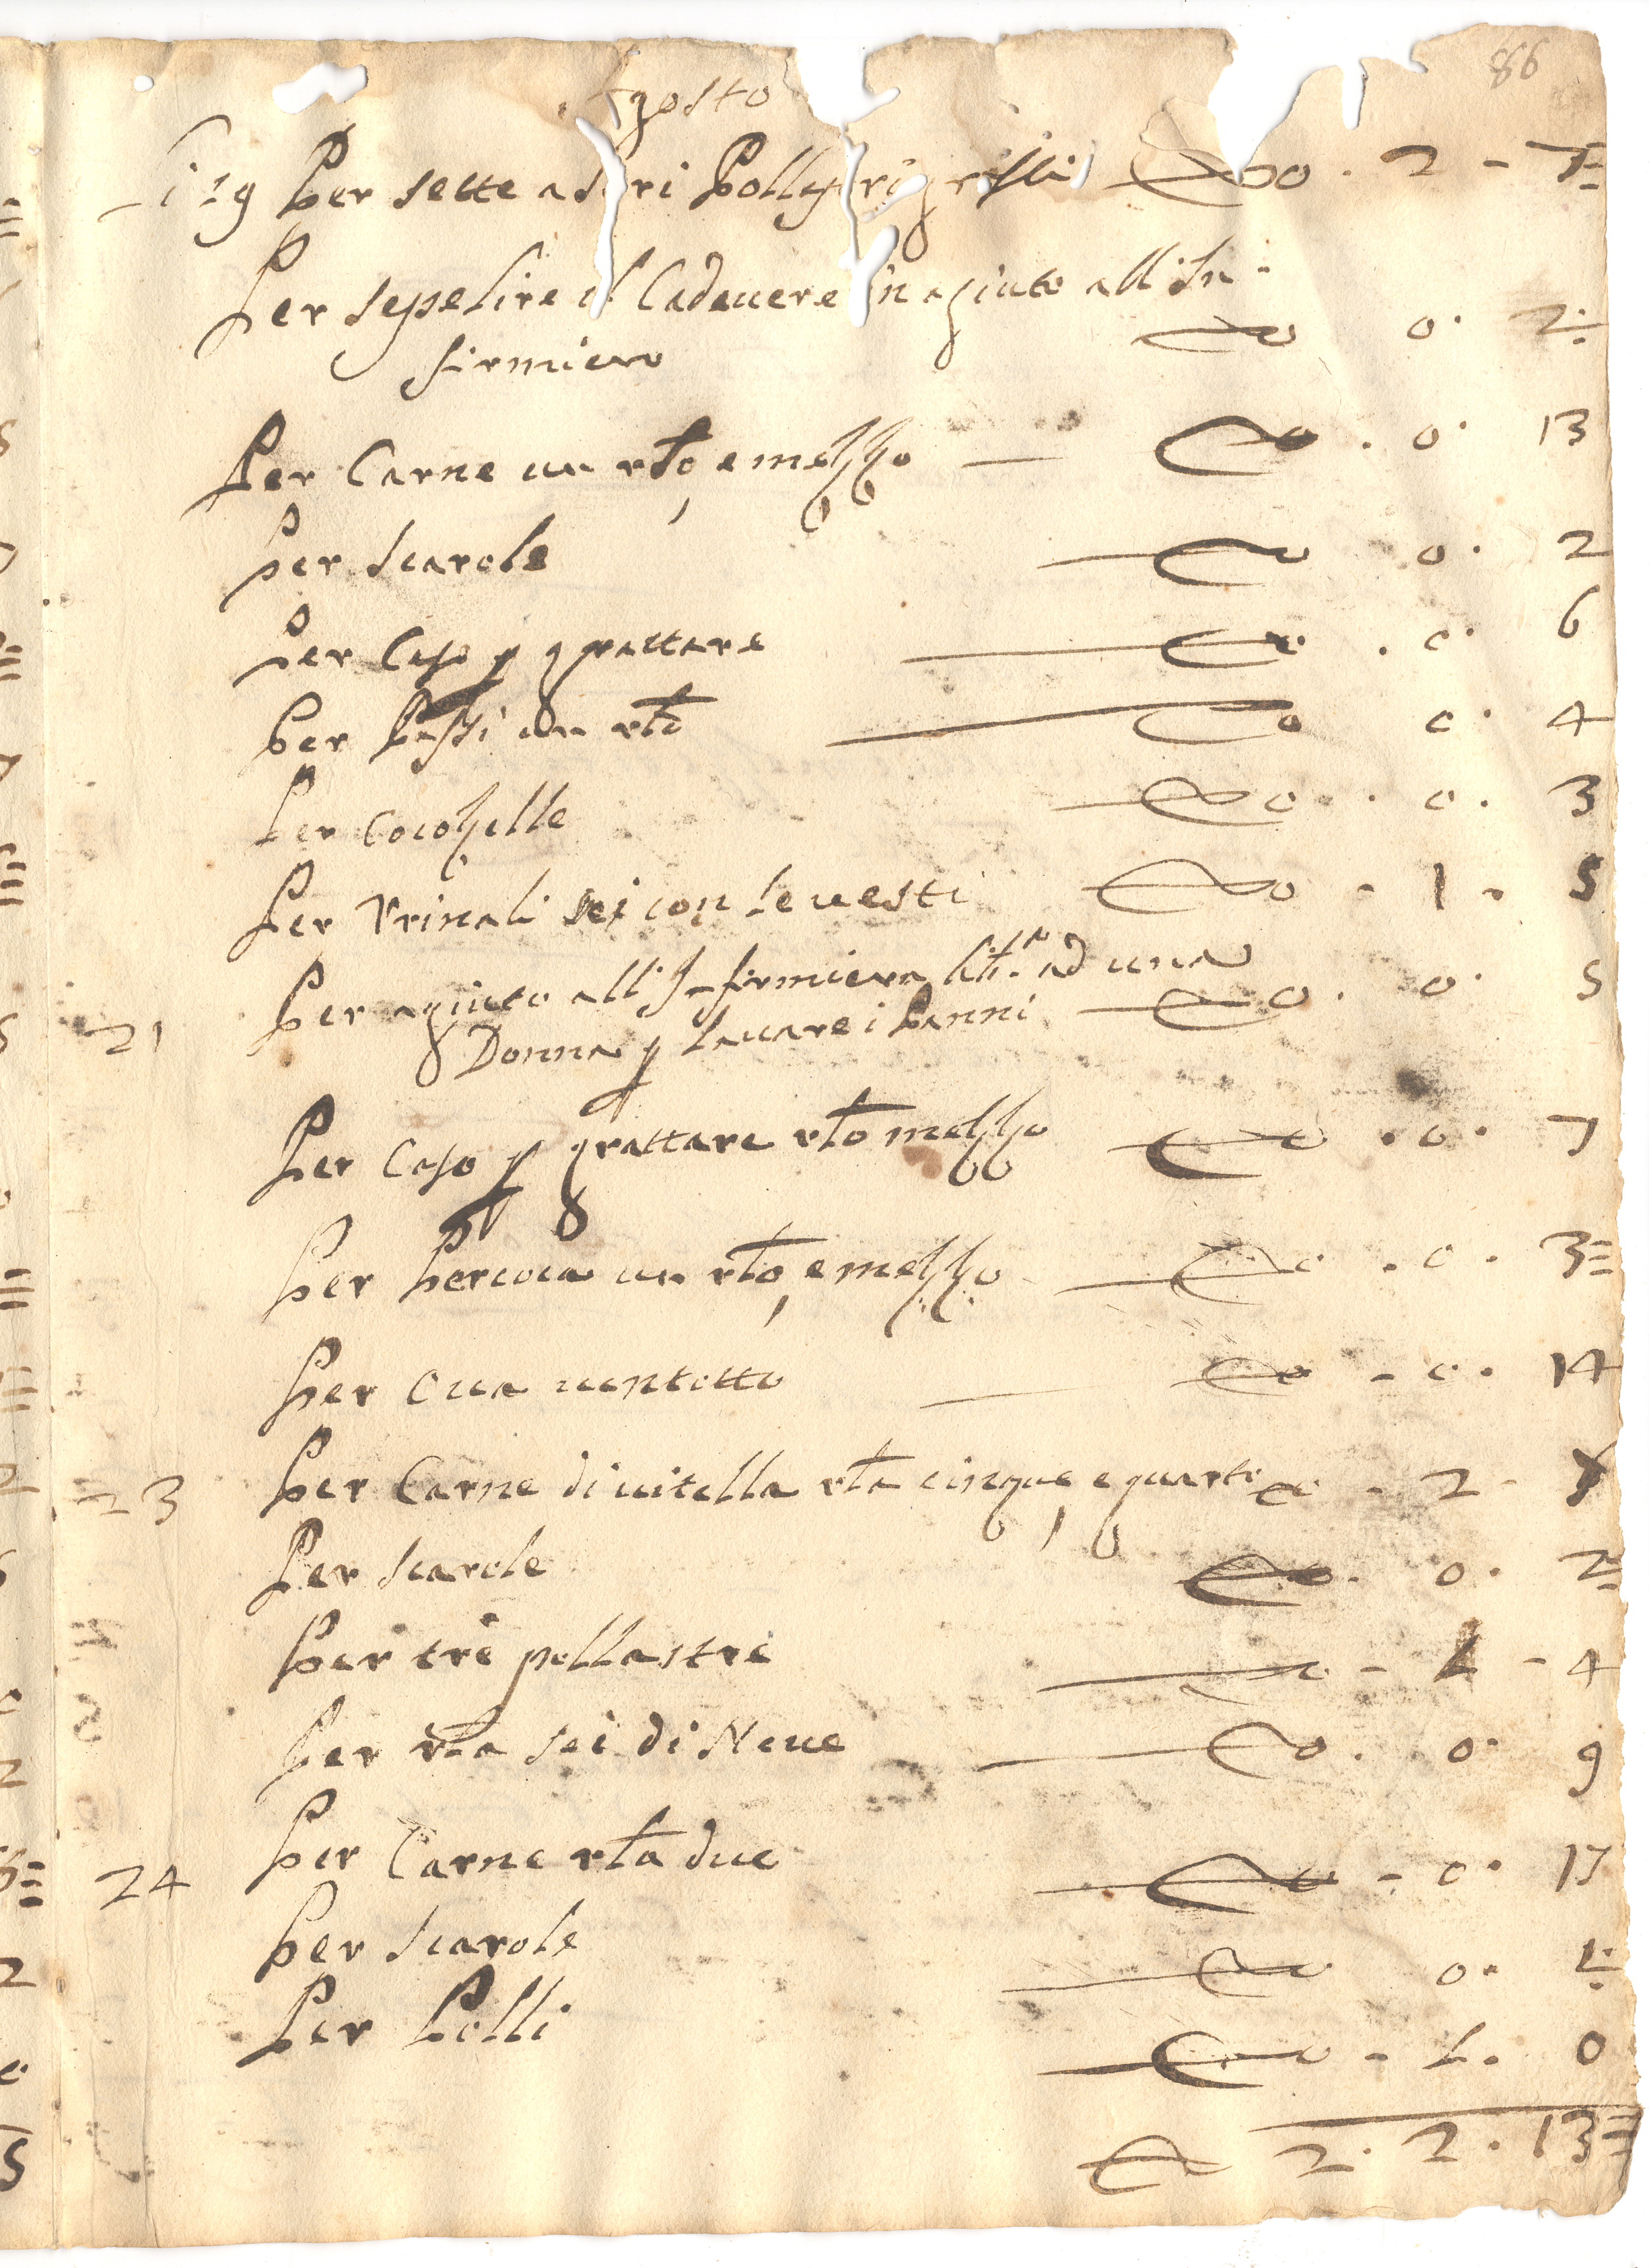 86
Agosto
Per sette polli grossi 0 · 2 - 7
Per sepelire il Cadauere in agiuto all'In-
firmiero 0 · 2
Per Carne un rlo, e mezzo 0 · 0 · 13
Per scarole 0 · 2
Per Caso p grattare 0 · 0 · 6
Per un rlo 0 · 4
Per Cocozelle 0 · 0 · 3
Per Vrinali sei con le uesti 0 - 1 - 5
21 Per agiuto all'Infirmiera ad una
Donna p lauare i Panni 0 · 0 · 5
Per Caso p grattare rlo mezzo 0 · 0 · 7
Per Percoca un rlo, e mezzo 0 · 0 · 3
Per Oua uentotto 0 - 0 · 14
23 Per Carne di uitella rla cinque, e quarto 0 - 2 -
Per Scarole 0 · 0 · 2
Per tre pollastre 0 - 1 - 4
Per rla sei di Neue 0 · 0 · 9
24 Per Carne rla due 0 - 0 · 17
Per Scarole 0 · 1
Per Polli 0 - 1 · 0
2 · 2 · 13